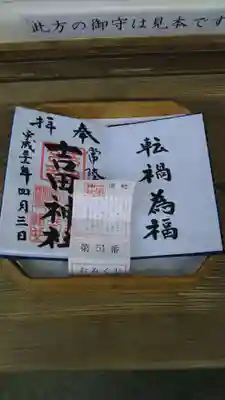 此方の御守は見本です
転禍為福
奉拝
常陸
吉田神社
平成三十一年四月三日
第51番
おみくじ